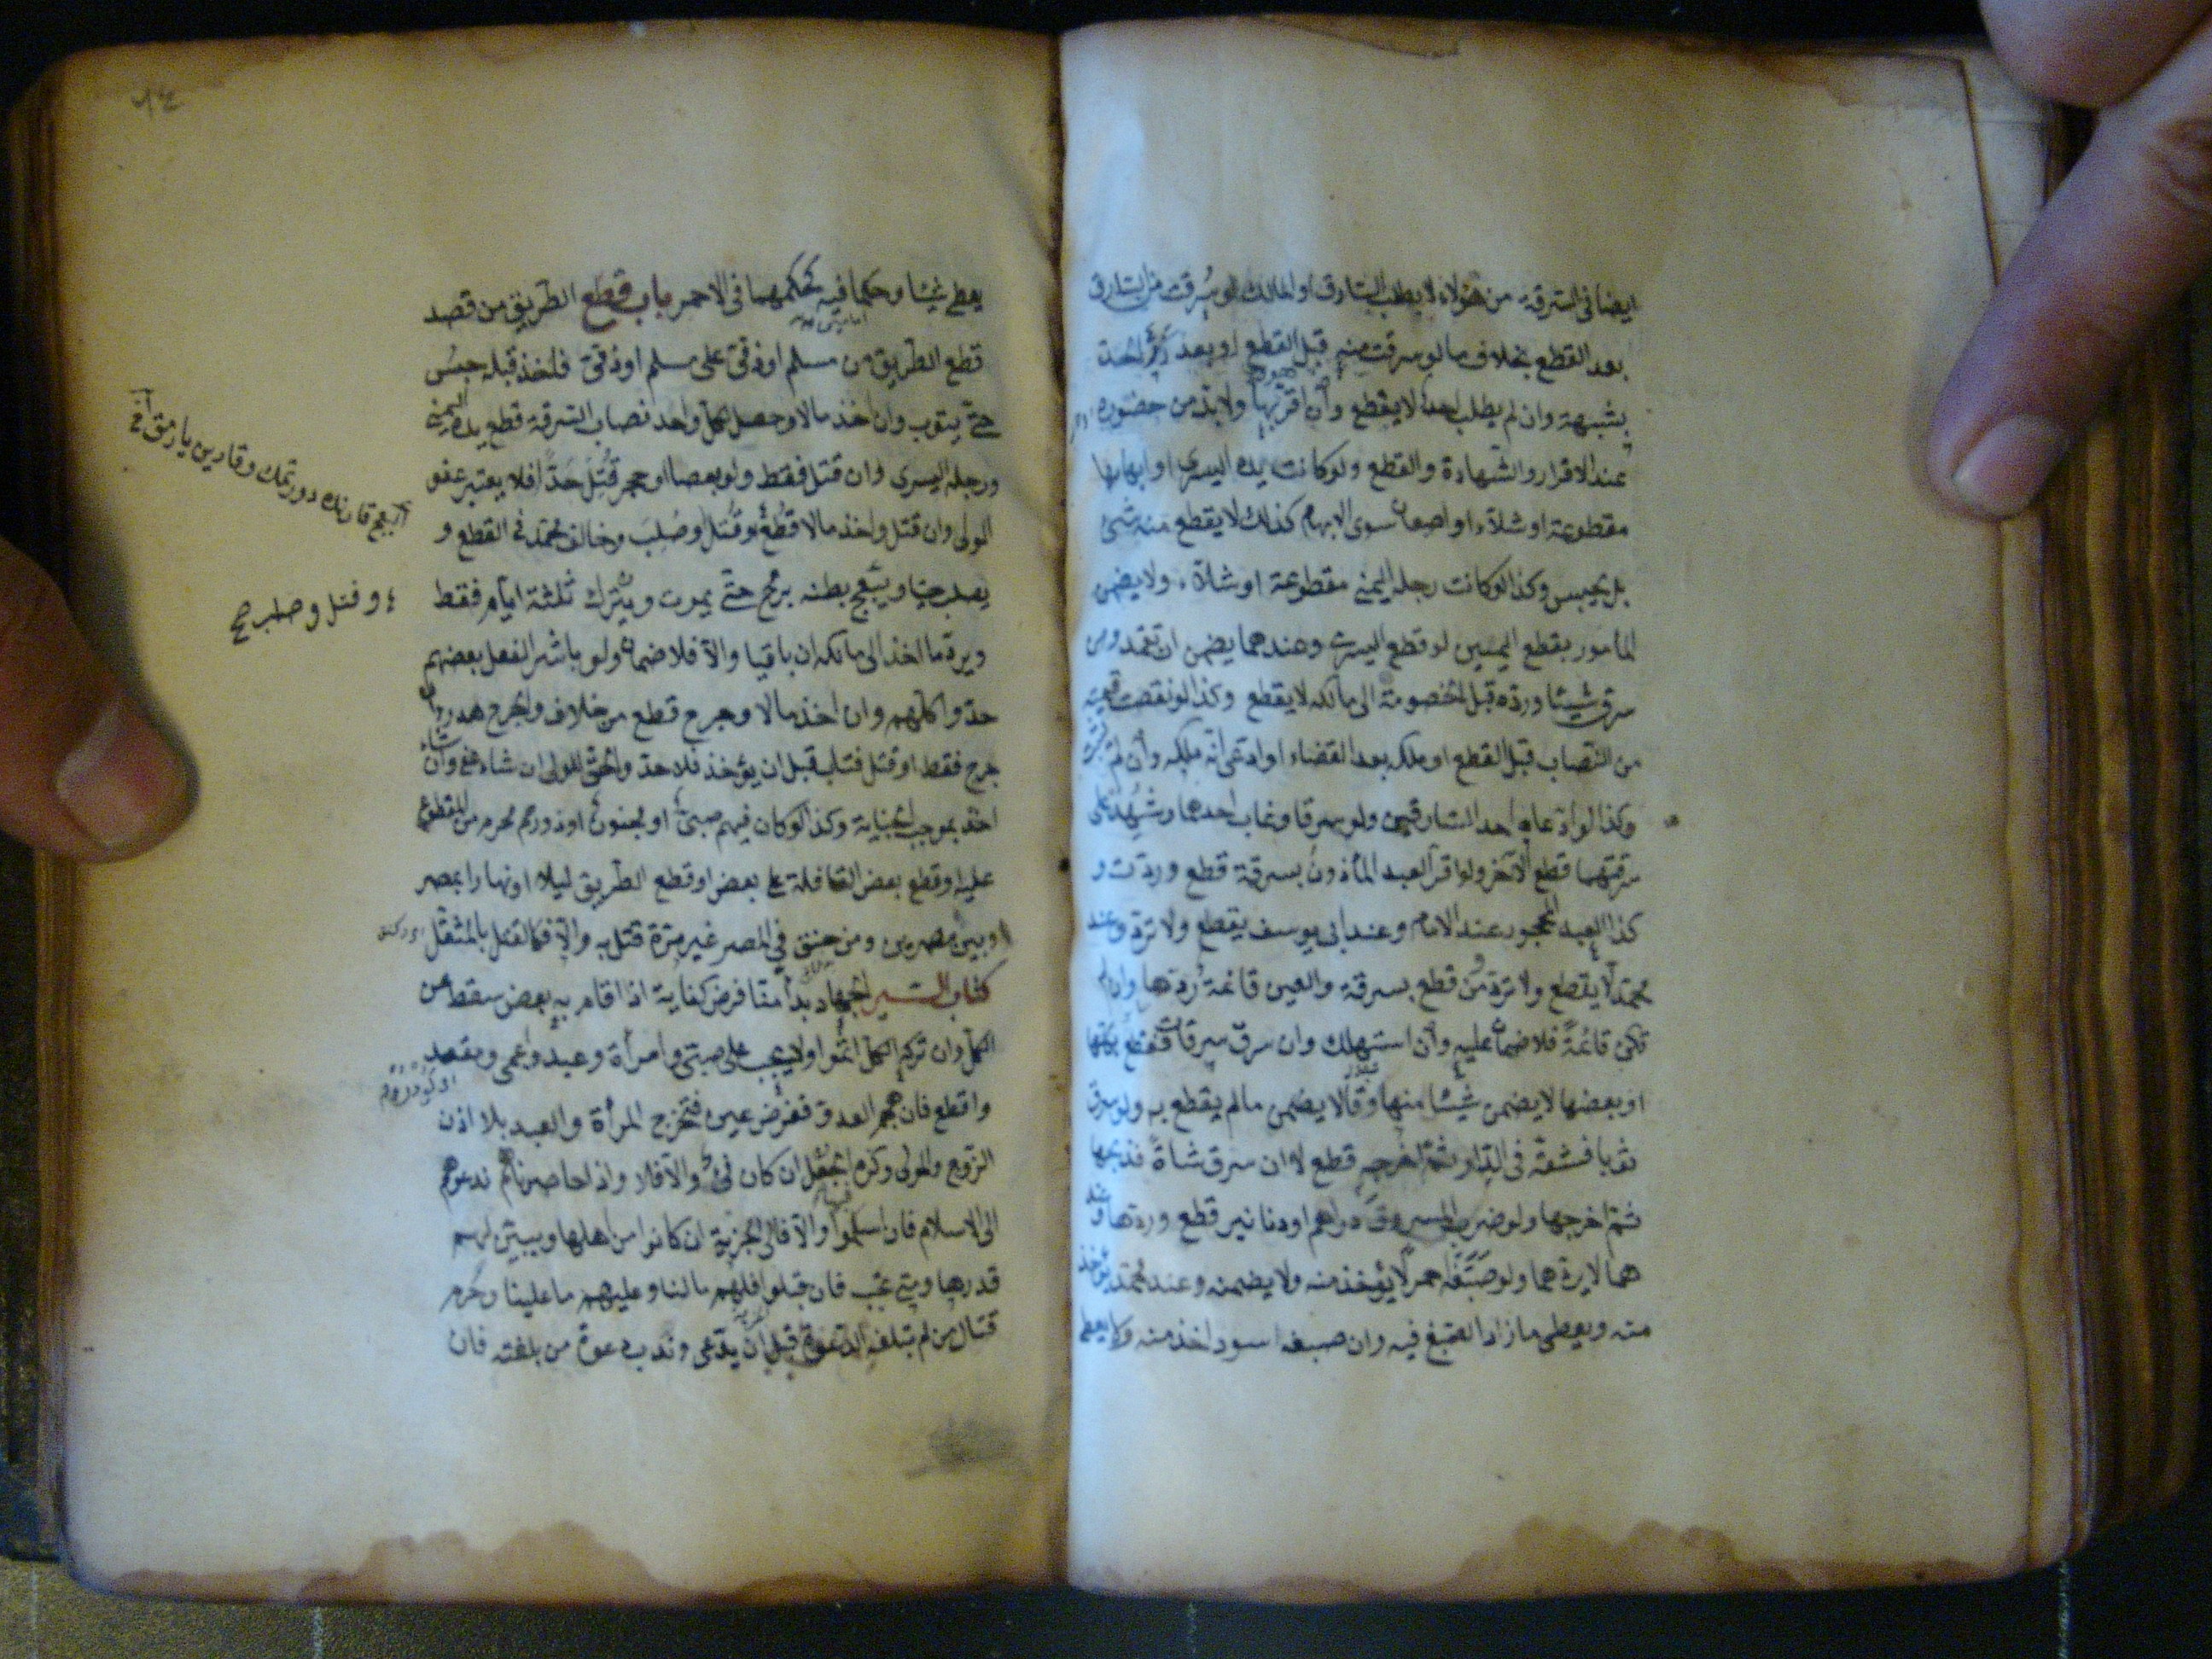 ايضا فى السرقة من هؤلاء لا بطلب السارق او المالك لو سرقت من السارق
بعد القطع بخلاف ما لو سرقت منه قبل القطع او بعد درئ الحد
بشبهة وان لم يطلب احد لا يقطع وان اقر بها ولا بد من حضوره
عند الاقرار والشهادة والقطع ولو كانت يده اليسرى او ابهامها
مقطوعة او شلاء او اصبعان سوى الابهام كذلك لا يقطع منه شئ
بل يحبس وكذا لو كانت رجله اليمنى مقطوعة او شلاء ولا يضمن
المأمور بقطع اليمين لو قطع اليسرى وعندهما يضمن ان تعمد ومن
سرق شيئا ورده قبل الخصومة الى مالكه لا يقطع وكذا لو نقصت قيمته
من النصاب قبل القطع او ملكه بعد القضاء او ادعى انه ملكه وان لم يثبت
وكذا لو ادعاه احد السارقين ولو سرقا وغاب احدهما وشهد على
سرقتهما قطع الآخر ولو اقر العبد المأذون بسرقة قطع وردت و
كذا العبد المحجور عند الامام وعند ابى يوسف يقطع ولا ترد وعند
محمد لا يقطع ولا ترد ومن قطع بسرقة والعين قائمة ردها وان لم
تكن قائمة فلا ضمان عليه وان استهلك وان سرق سرقات فقطع بكلها
او بعضها لا يضمن شيئا منها وقالا يضمن ما لم يقطع به ولو سرق
ثوبا فشقه فى الدار ثم اخرجه قطع لا ان سرق شاة فذبحها
ثم اخرجها ولو ضرب المسروق دراهم او دنانير قطع وردها وعند
هما لا يردهما ولو صبغه احمر لا يؤخذ منه ولا يضمنه وعند محمد يؤخذ
منه ويعطى ما زاد الصبغ فيه وان صبغه اسود اخذ منه ولا يعطى
يعطى شيئا وحكما فيه كحكمهما فى الاحمر باب قطع الطريق من قصد
قطع الطريق من مسلم او ذمى على مسلم او ذمى فاخذ قبله حبس
حتى يتوب وان اخذ مالا وحصل لكل واحد نصاب السرقة قطع يده اليمنى
ورجله اليسرى وان قتل فقط ولو بعصا او حجر قتل حدا فلا يعتبر عفو
الولى وان قتل واخذ مالا قطع وقتل وصلب وخالف محمد فى القطع و
يصلب حيا ويبعج بطنه برمح حتى يموت ويترك ثلثة ايام فقط
ويرد ما اخذ الى مالكه ان باقيا والا فلا ضمان ولو باشر الفعل بعضهم
حدوا كلهم وان اخذ مالا وجرح قطع من خلاف والجرح هدر وان
جرح فقط او قتل فتاب قبل ان يؤخذ فلا حد والحق للولى ان شاء عفى وان شاء
اخذ بموجب الجناية وكذا لو كان فيهم صبى او مجنون او ذو رحم محرم من المقطوع
عليه او قطع بعض القافلة على بعض او قطع الطريق ليلا او نهارا بمصر
او بين مصرين ومن خنق فى المصر غير مرة قتل به والا فكالقتل بالمثقل
كتاب السير الجهاد بدأ منا فرض كفاية اذا قام به بعض سقط عن
الكل وان تركه الكل اثموا ولا يجب على صبى وامرأة وعبد واعمى ومقعد
واقطع فان هجم العدو ففرض عين فتخرج المرأة والعبد بلا اذن
الزوج والمولى وكره الجعل ان كان فئ والا فلا واذا حاصرناهم ندعوهم
الى الاسلام فان اسلموا والا فالى الجزية ان كانوا من اهلها ويبين لهم
قدرها ومتى تجب فان قبلوا فلهم ما لنا وعليهم ما علينا وحرم
قتال من لم تبلغه الدعوة قبل ان يدعى وندب دعوة من بلغته فان
وقتل وصلب صح